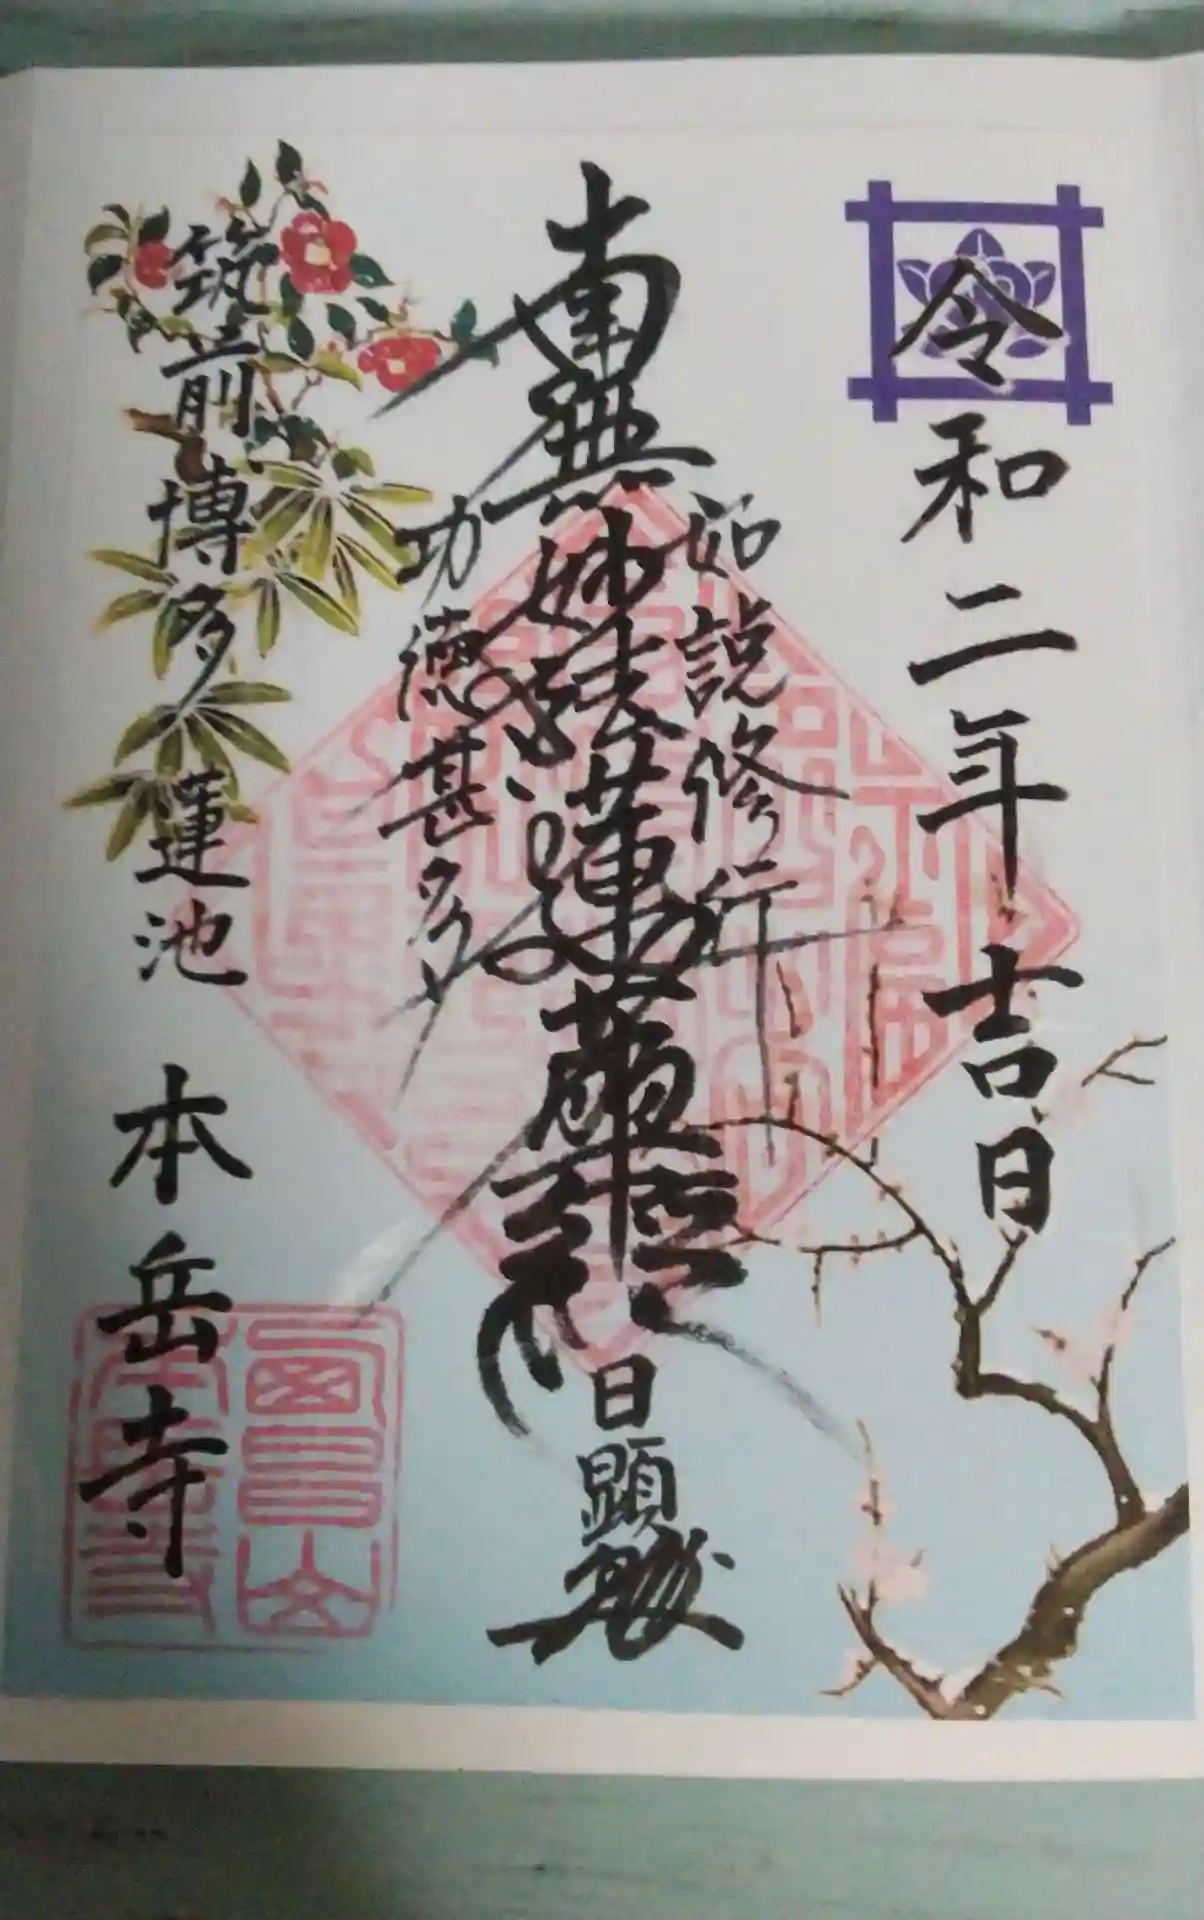 令和二年吉日
如説修行
南無妙法蓮華經
日顕
功徳甚多
筑前博多蓮池 本岳寺